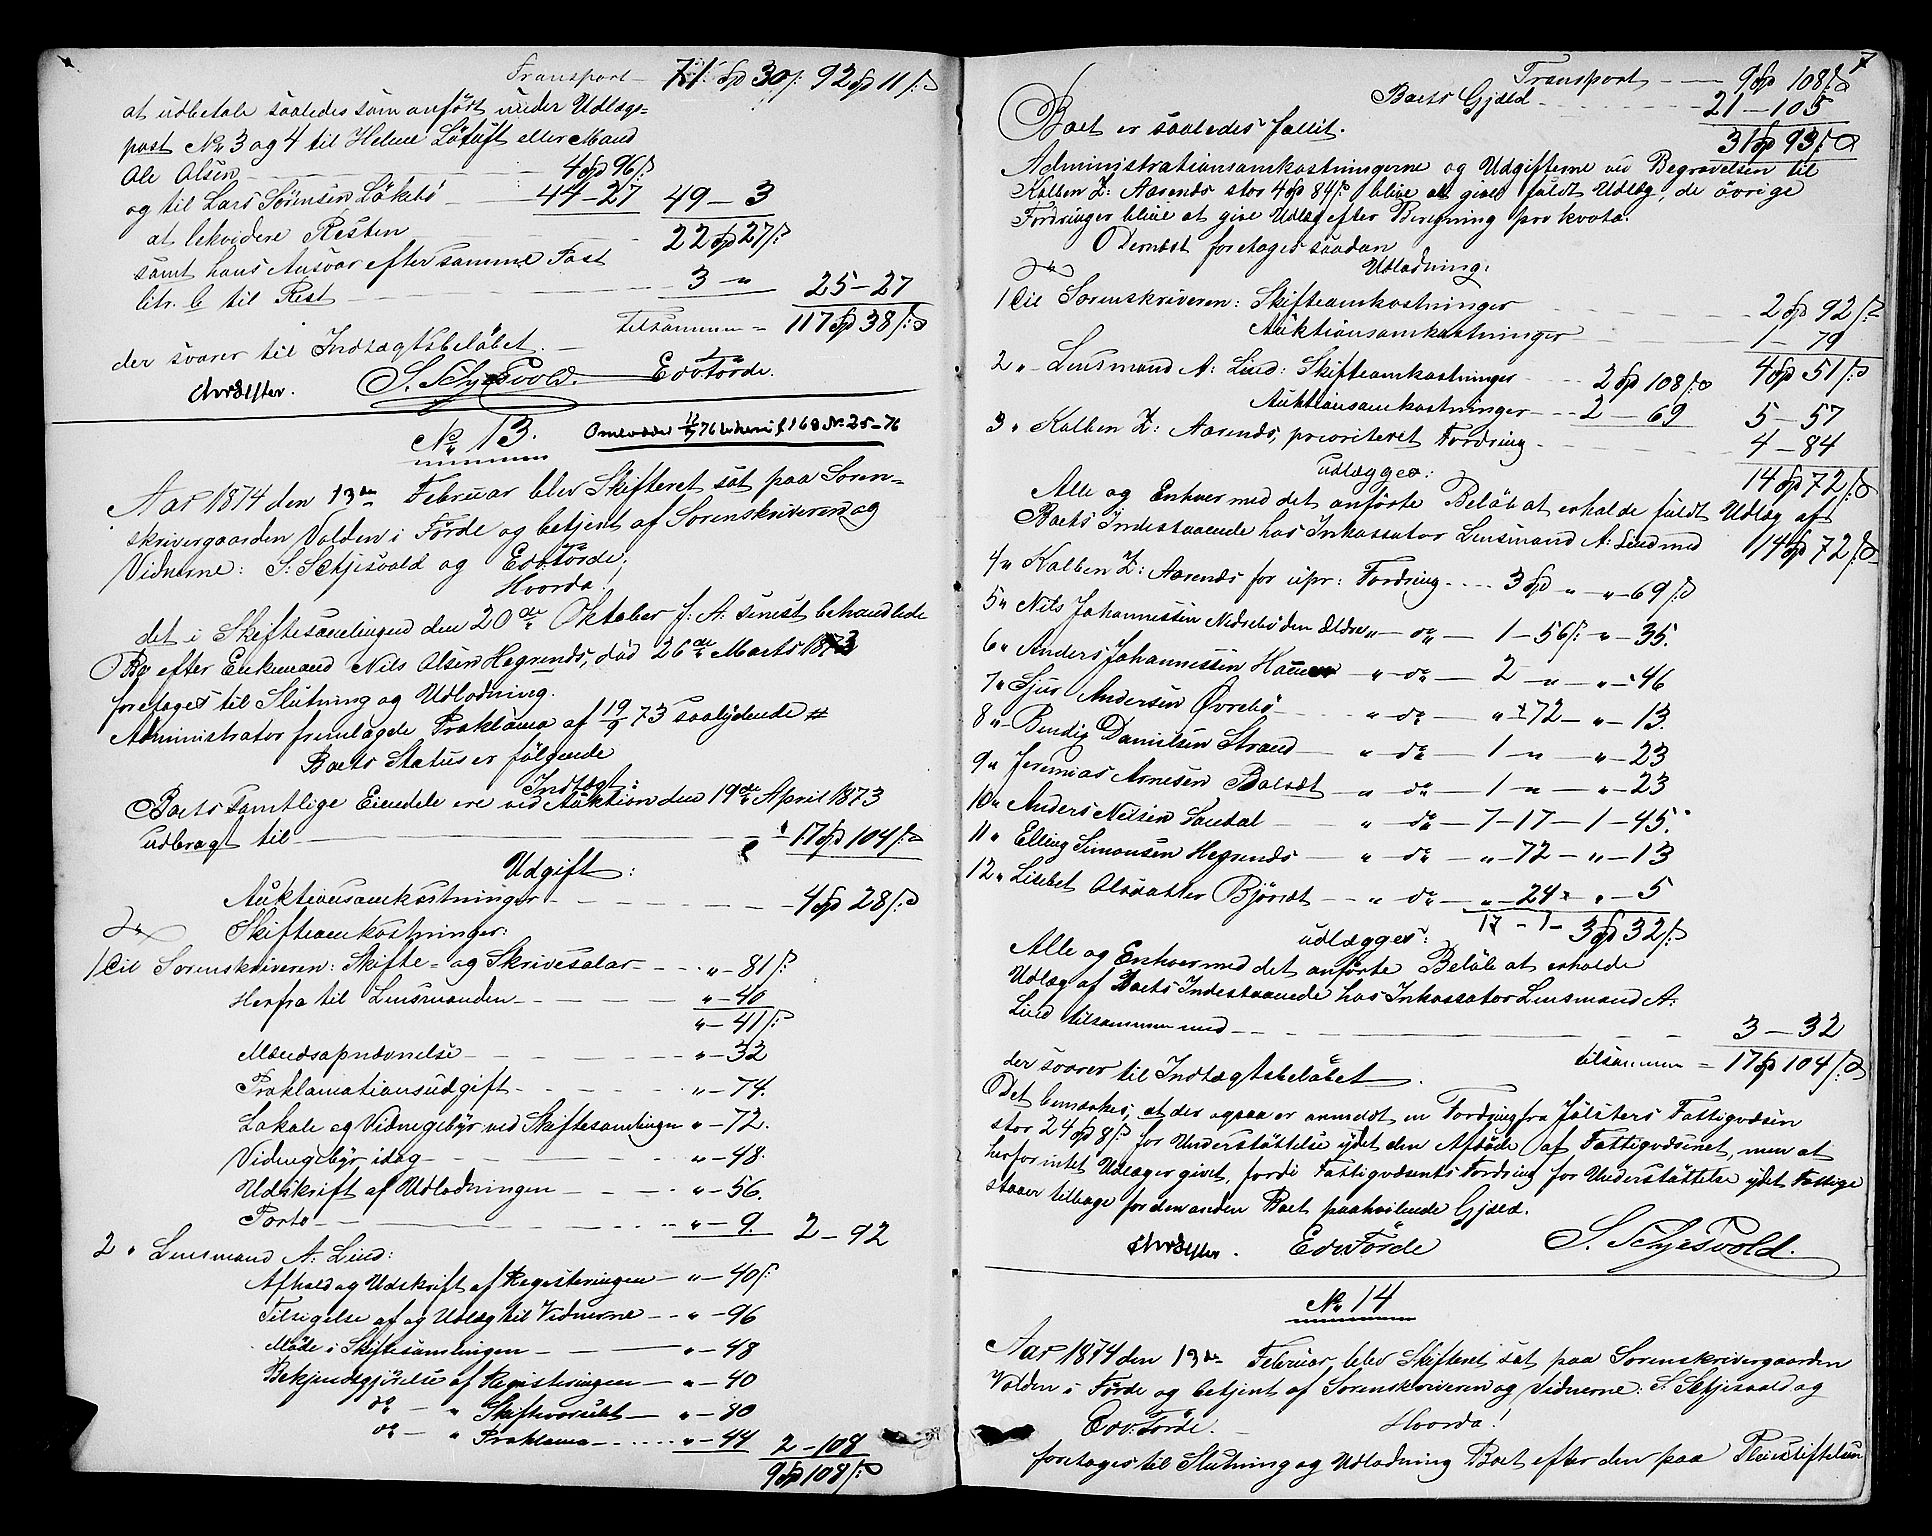 Transport — 71 Spd 30 ß. 92 Spd 11 ß
at udbetale saaledes som anført under Udlægs-
post No 3 og 4 til Helene Løtuft eller Mand
Ole Olsen — 4 Spd 96 ß
og til Lars Sørensen Løkebø — 44 - 27 49 - 3
at likvidere Resten 22 Spd 27 ß
samt hans Ansvar efter samme Post
litr. b til Rest — 3 - " 25 - 27
tilsammen = 117 Spd 38 ß
der svarer til Indtægtsbeløbet. —
S. Schjesvold. Edv Førde.
No 13. 168 No 25-76
Aar 1874 den 13de Februar blev Skifteret sat paa Soren-
skrivergaarden Volden i Førde og betjent af Sorenskriveren og
Vidnerne: S. Schjesvold og Edv. Førde;
Hvorda!
det i Skiftesamlingen den 20de Oktober f. A. sinest behandlede
Bo efter Enkemand Nils Olsen Hegrenæs, død 26de Marts 1873
foretages til Slutning og Udlodning.
Administrator fremlagde Proklama af 19/9 73 saalydende #
Boets Status er følgende
Indtægt:
Boets samtlige Eiendele ere ved Auktion den 19de April 1873
udbragt til — 17 Spd 104 ß
Udgift:
Auktionsomkostninger — 4 Spd 28 ß
Skifteomkostninger:
1 Til Sorenskriveren: Skifte- og Skrivesalar — " - 81 ß
Herfra til Lensmanden — " - 40
" - 41 ß
Mændsopnævnelse — " - 32
Proklamationsudgift — " - 74.
Lokale og Vidnegebyr ved Skiftesamlingen " - 72.
Vidnegebyr idag — " - 48.
Udskrift af Udlodningen — " - 56.
Porto — " - 9. 2 - 92
2 " Lensmand A. Lind:
Afhold og Udskrift af Registeringen — " - 40 ß
Tilsigelse af og Udlæg til Vidnerne — " - 96
Møde i Skiftesamlingen — " - 48
Bekjendtgjørelse af Registeringen — " - 40
do — " Skifte — " - 80
do — " Proklama — " - 44 2 - 108
9 Spd 108 ß
7
Transport — 9 Spd 108 ß
Boets Gjæld — 21 - 105
Boet er saaledes fallit. 31 Spd 93 ß
Administrationsomkostningerne og Udgifterne ved Begravelsen til
Kolben Z. Aarends stor 4 Spd 84 ß blive at give fuldt Udlæg, de øvrige
Fordringer blive at give Udlæg efter Beregning pro kvota.
Dernæst foretages saadan
Udlodning.
1 Til Sorenskriveren: Skifteomkostninger — 2 Spd 92 ß
Auktionsomkostninger — 1 - 79
4 Spd 51 ß
2 " Lensmand A. Lind: Skifteomkostninger — 2 Spd 108 ß
Auktionsomkostninger — 2 - 69 5 - 57
3 " Kolben Z. Aarends, prioriteret Fordring — 4 - 84
udlægges: 14 Spd 72 ß
Alle og Enhver med det anførte Beløb at erholde fuldt Udlæg af
Boets Indestaaende hos Inkassator Lensmand A. Lind med 14 Spd 72 ß
4 " Kolben Z. Aarends for upr: Fordring — 3 Spd " " - 69 ß
5 " Nils Johannessen Nedrebø den Ældre " - do — 1 - 56 ß " - 35.
6 " Anders Johannessen — " - do — 2 - " " - 46
7 " Sjur Andersen Øvrebø — " - do — " - 72 - " - 13.
8 " Bendig Danielsen Strand — " - do — 1 - " " - 23
9 " Jeremias Arnesen — " - do — 1 - " " - 23
10 " Anders Nilsen Sandal — " - do — 7 - 17 - 1 - 45.
11 " Elling Simonsen Hegrenæs — " - do — " - 72 - " - 13
12 " Lisbet Olsdatter — " - do — " - 24 " " - 5
17 - 1 - 3 Spd 32 ß
udlægges:
Alle og Enhver med det anførte Beløb at erholde
Udlæg af Boets Indestaaende hos Inkassator Lensmand A.
Lind tilsammen med — 3 - 32
tilsammen = 17 Spd 104 ß
der svarer til Indtægtsbeløbet.
Det bemærkes, at der ogsaa er anmeldt en Fordring fra Jølsters Fattigvæsen
stor 24 Spd 8 ß for Understøttelse ydet den Afdøde af Fattigvæsenet, men at
herfor intet Udlæg er givet, fordi Fattigvæsenets Fordring for Understøttelse ydet Fattige
staaer tilbage for den anden Boet paahvilende Gjæld.
Edv Førde S. Schjesvold.
No 14
Aar 1874 den 13de Februar blev Skifteret sat paa Sorenskrivergaarden
Volden i Førde og betjent af Sorenskriveren og Vidnerne: S. Schjesvold og
Edv. Førde. Hvorda!
foretages til Slutning og Udlodning Boet efter den paa Pleiestiftelsen